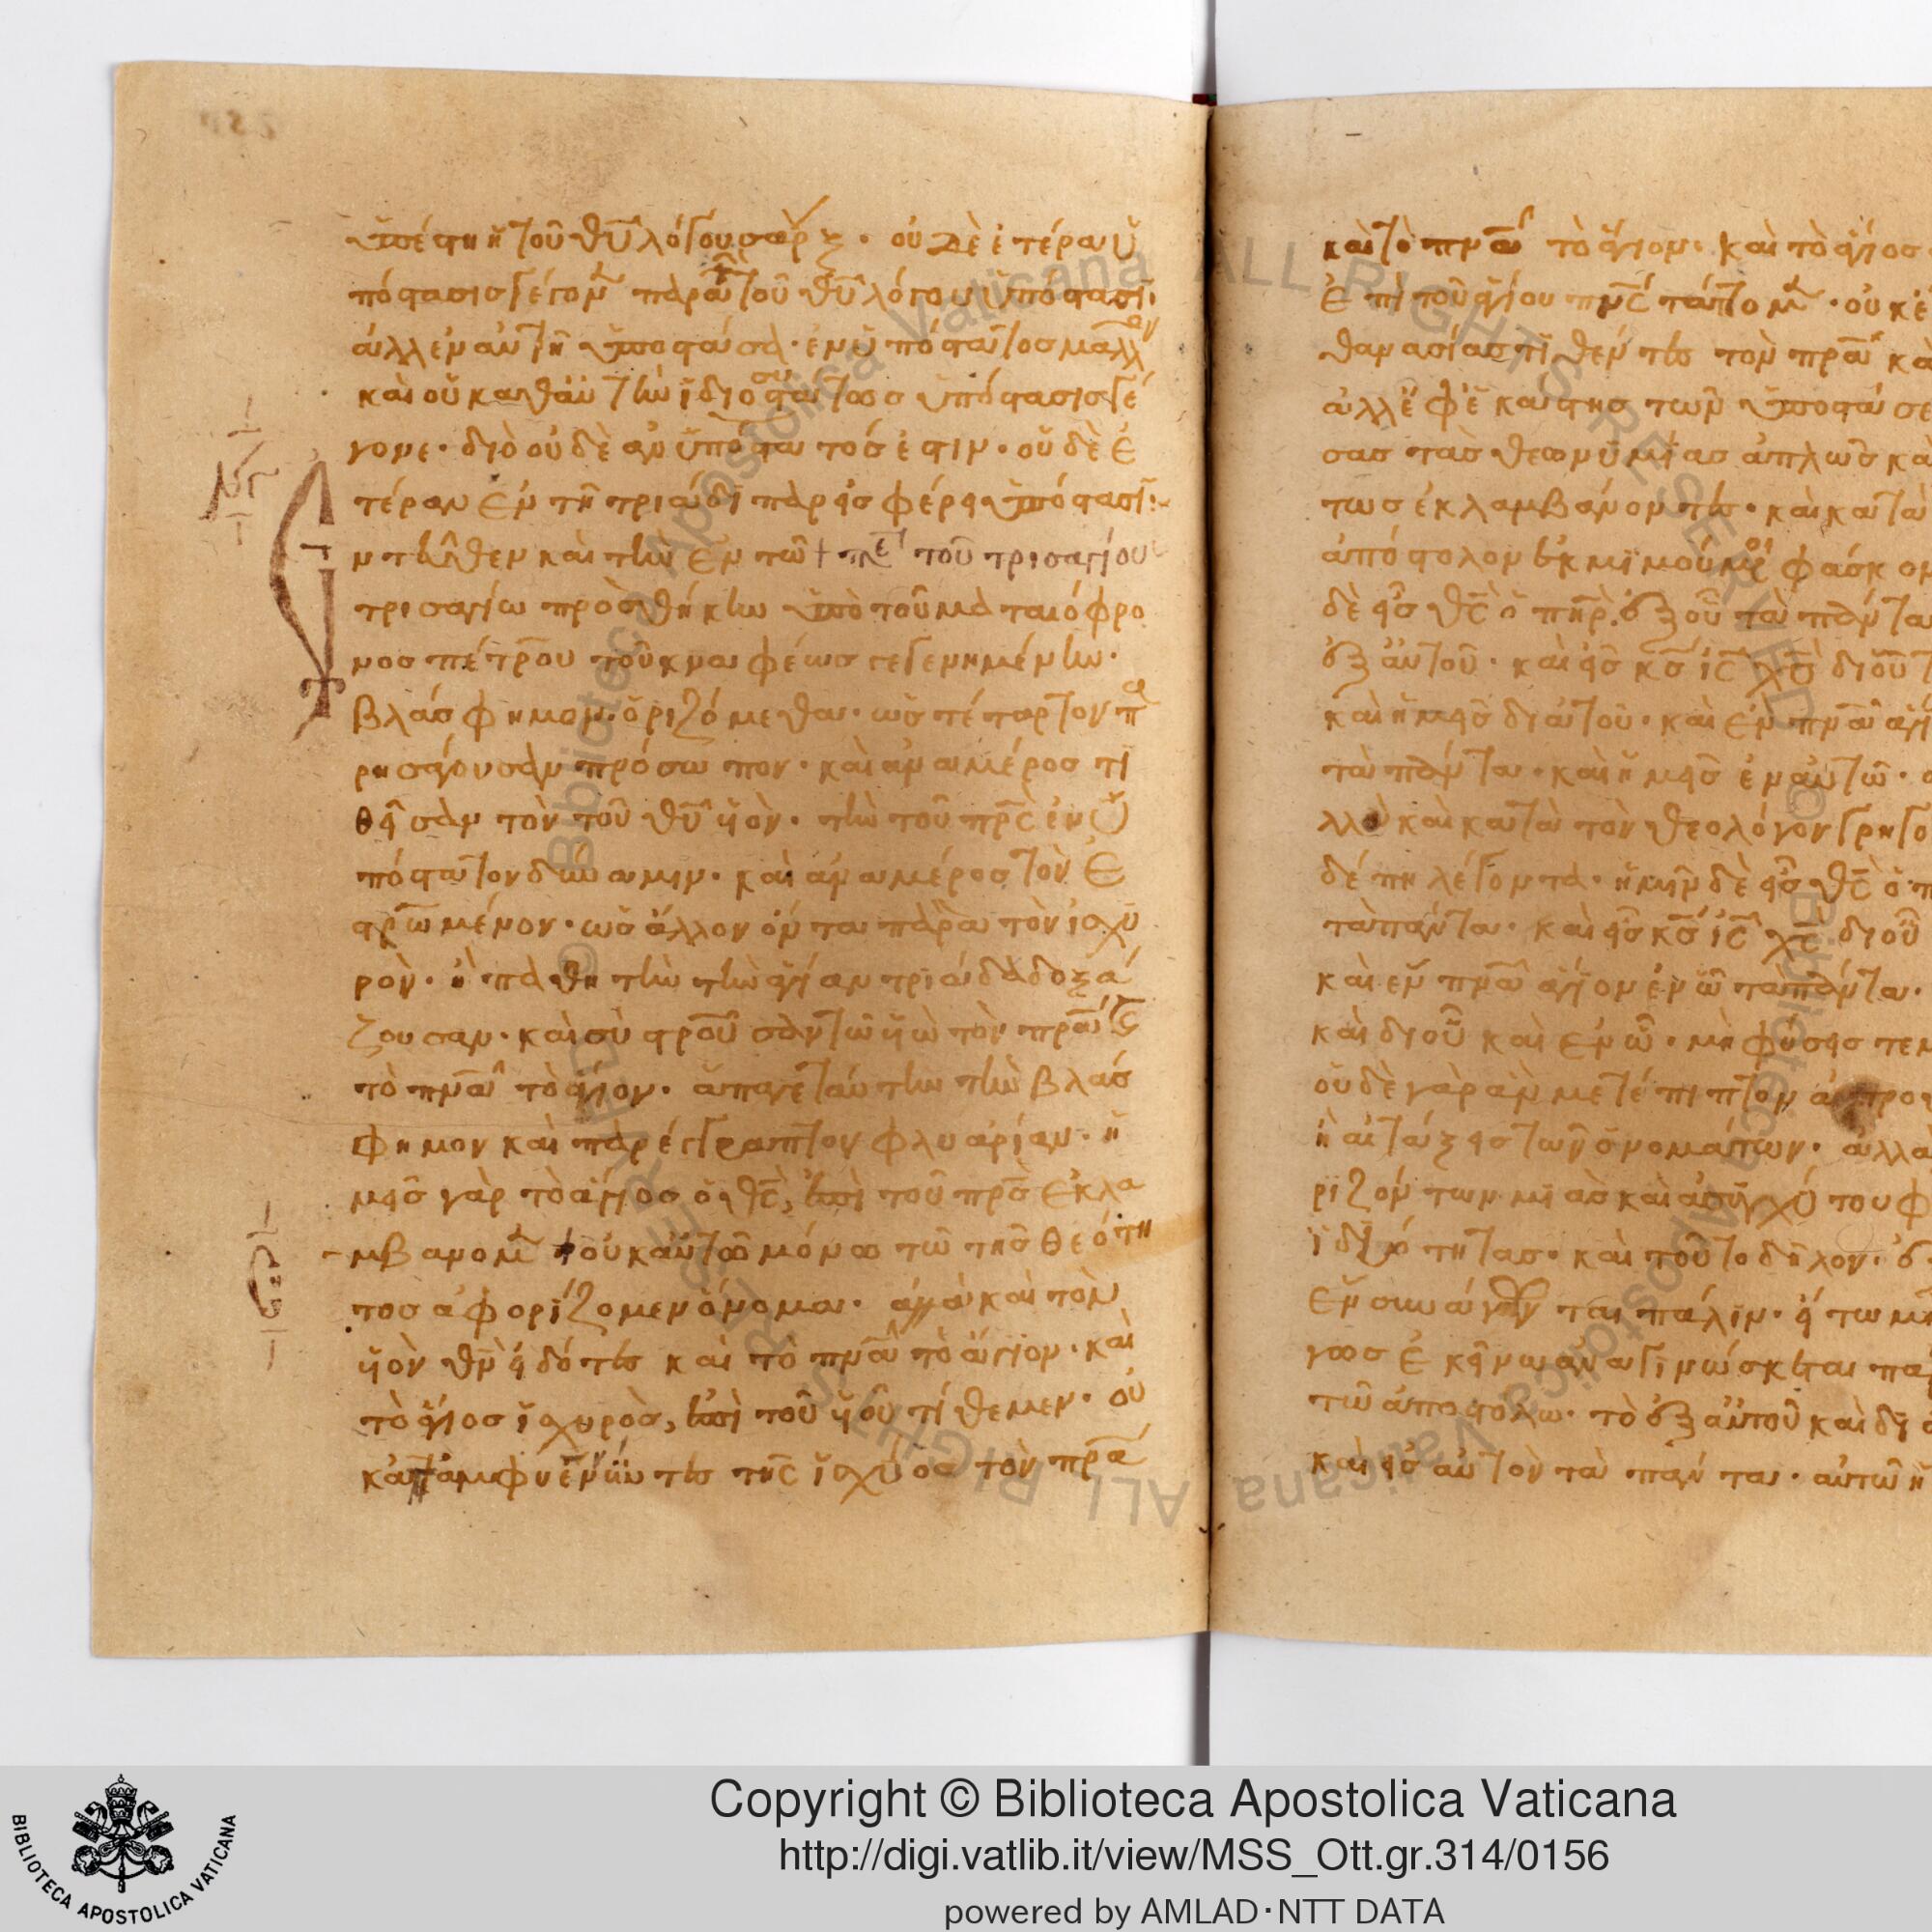 ὑπέστη ἡ τοῦ θῦ λόγου σὰρξ· οὐδὲ ἑτέρα ὑ
πόστασις γέγον παρὰ τὴν τοῦ θῦ λόγου ὑπόστασι·
ἀλλ ἐν αὐτῆ ὑποστᾶσα· ἐνυπόστατος μᾶλλον
καὶ οὐ καθ αὑτὴν ἰδιοσυστάτως ὑπόστασις γέ
γονε· διὸ οὐδὲ ἀνυπόστατός ἐστιν· οὐδὲ ἑ
τέραν ἐν τῆ τριάδι παρεισφέρει ὑπόστασι·
ντεῦθεν καὶ τὴν ἐν τῶ + περὶ τοῦ τρισαγίου
τρισαγίω προσθήκην ὑπὸ τοῦ ματαιόφρο
νος πέτρου τοῦ κναφέως γεγενημένην·
βλάσφημον ὁριζόμεθα· ὡς τέταρτον πα
ρεισάγουσαν πρόσωπον· καὶ ἀνὰ μέρος τι
θεῖσαν τὸν τοῦ θῦ υἱὸν· τὴν τοῦ πρς ἐνυ
πόστατον δύναμιν· καὶ ἀνὰ μέρος τὸν ἐ
σταυρωμένον· ὡς ἄλλον ὄντα παρὰ τὸν ἰσχυ
ρὸν· ἢ παθητὴν τὴν ἁγίαν τριάδα δοξά
ζουσαν· καὶ συσταυροῦσαν τῶ υἱῶ τὸν πρα καὶ
τὸ πνα τὸ ἅγιον· ἄπαγε ταύτην τὴν βλάσ
φημον καὶ παρέγγραπτον φλυαρίαν· ἡ
μεῖς γὰρ τὸ ἅγιος ὁ θς, ἐπὶ τοῦ πρς ἐκλα
μβάνομεν οὐκ αὐτῶ μόνω τῶ τῆς θεότη
τος ἀφορίζομεν ὄνομα· ἀλλὰ καὶ τὸν
υἱὸν θν εἰδότες καὶ τὸ πνα τὸ ἅγιον· καὶ
τὸ ἅγιος ἰσχυρὸς, ἐπὶ τοῦ υἱοῦ τίθεμεν· οὐ
κ ἀπαμφιεννύντες τῆς ἰσχύος τὸν πρα
καὶ τὸ πνα τὸ ἅγιον· καὶ τὸ ἅγιος
ἐπὶ τοῦ ἁγίου πνς τάττομεν· οὐκ ἔ
θανασίας τιθέντες τὸν πρα κα
ἀλλ ἐφ ἑκάστης τῶν ὑποστάσε
σας τὰς θεωνυμίας ἁπλῶς κα
τως ἐκλαμβάνοντες· καὶ κατὰ
ἀπόστολον ἐκμιμούμενοι φάσκον
δὲ εἷς θς ὁ πηρ, ἐξ οὗ τὰ πάντα
ἐξ αὐτοῦ· καὶ εἷς κς ις χς δι οὗ τ
καὶ ἡμεῖς δι αὐτοῦ· καὶ ἓν πνα ἅγι
τὰ πάντα· καὶ ἡμεῖς ἐν αὐτῶ·
λλὰ καὶ κατὰ τὸν θεολόγον γρηγο
δέ πη λέγοντα· ἡμῖν δὲ εἷς θς ὁ π
τὰ πάντα· καὶ εἷς κς ις χς δι οὗ
καὶ ἓν πνα ἅγιον ἐν ὧ τὰ πάντα·
καὶ δι οὗ καὶ ἐν ὧ· μὴ φύσεις τεμ
οὐδὲ γὰρ ἂν μετέπιπτον αἱ προ
ἢ αἱ τάξεις τῶν ὀνομάτων· ἀλλὰ
ριζόντων μιᾶς καὶ ἀσυγχύτου φ
ἰδιότητας· καὶ τοῦτο δῆλον· ἐ
ἓν συνάγονται πάλιν· εἴ τω μὴ
γως ἐκεῖνα ἀναγινώσκεται πα
τῶ ἀποστόλω· τὸ ἐξ αὐτοῦ καὶ δι
καὶ εἰς αὐτὸν τὰ πάντα· αὐτῶ ἡ
Copyright © Biblioteca Apostolica Vaticana
http://digi.vatlib.it/view/MSS_Ott.gr.314/0156
powered by AMLAD·NTT DATA
BIBLIOTECA APOSTOLICA VATICANA
© Biblioteca Apostolica Vaticana ALL RIGHTS RESERVED